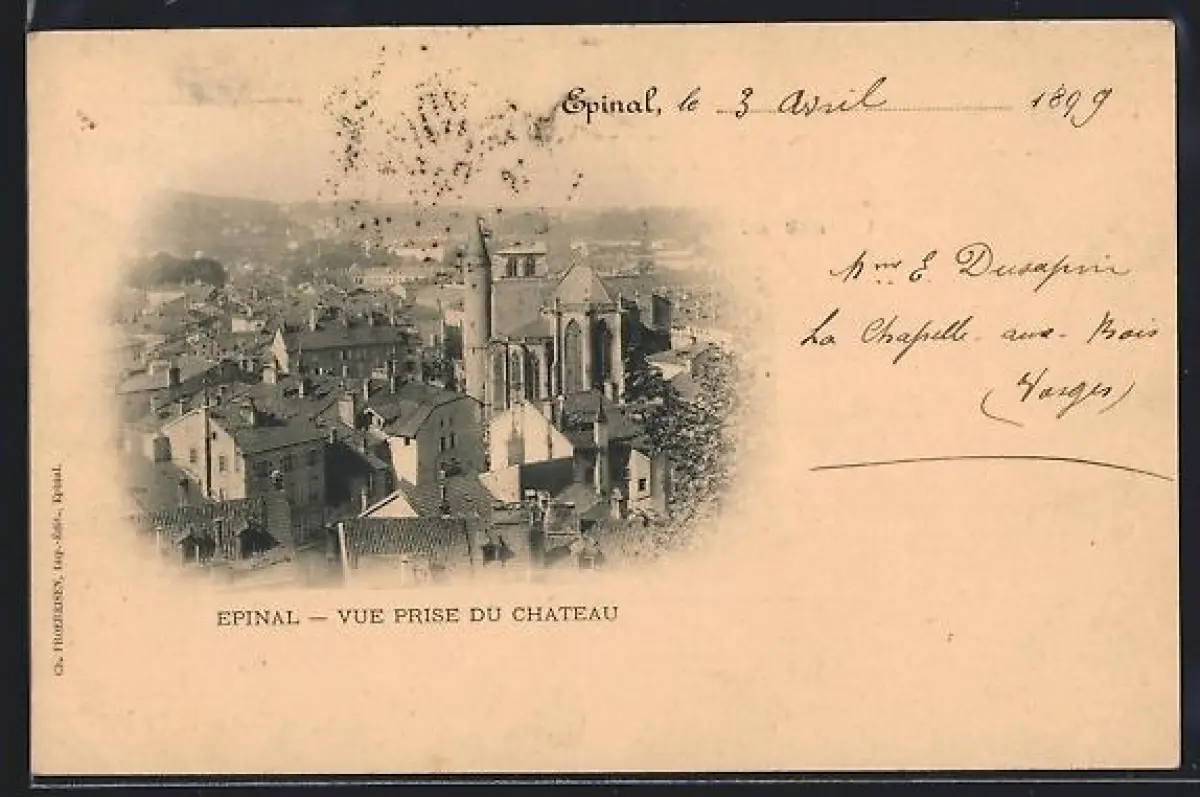 Epinal, le 3 Avril 1899
Mme E. Dusapin
La Chapelle-aux-Bois
(Vosges)
EPINAL — VUE PRISE DU CHATEAU
Ch. FROEREISEN, Imp.-Edit., Epinal.